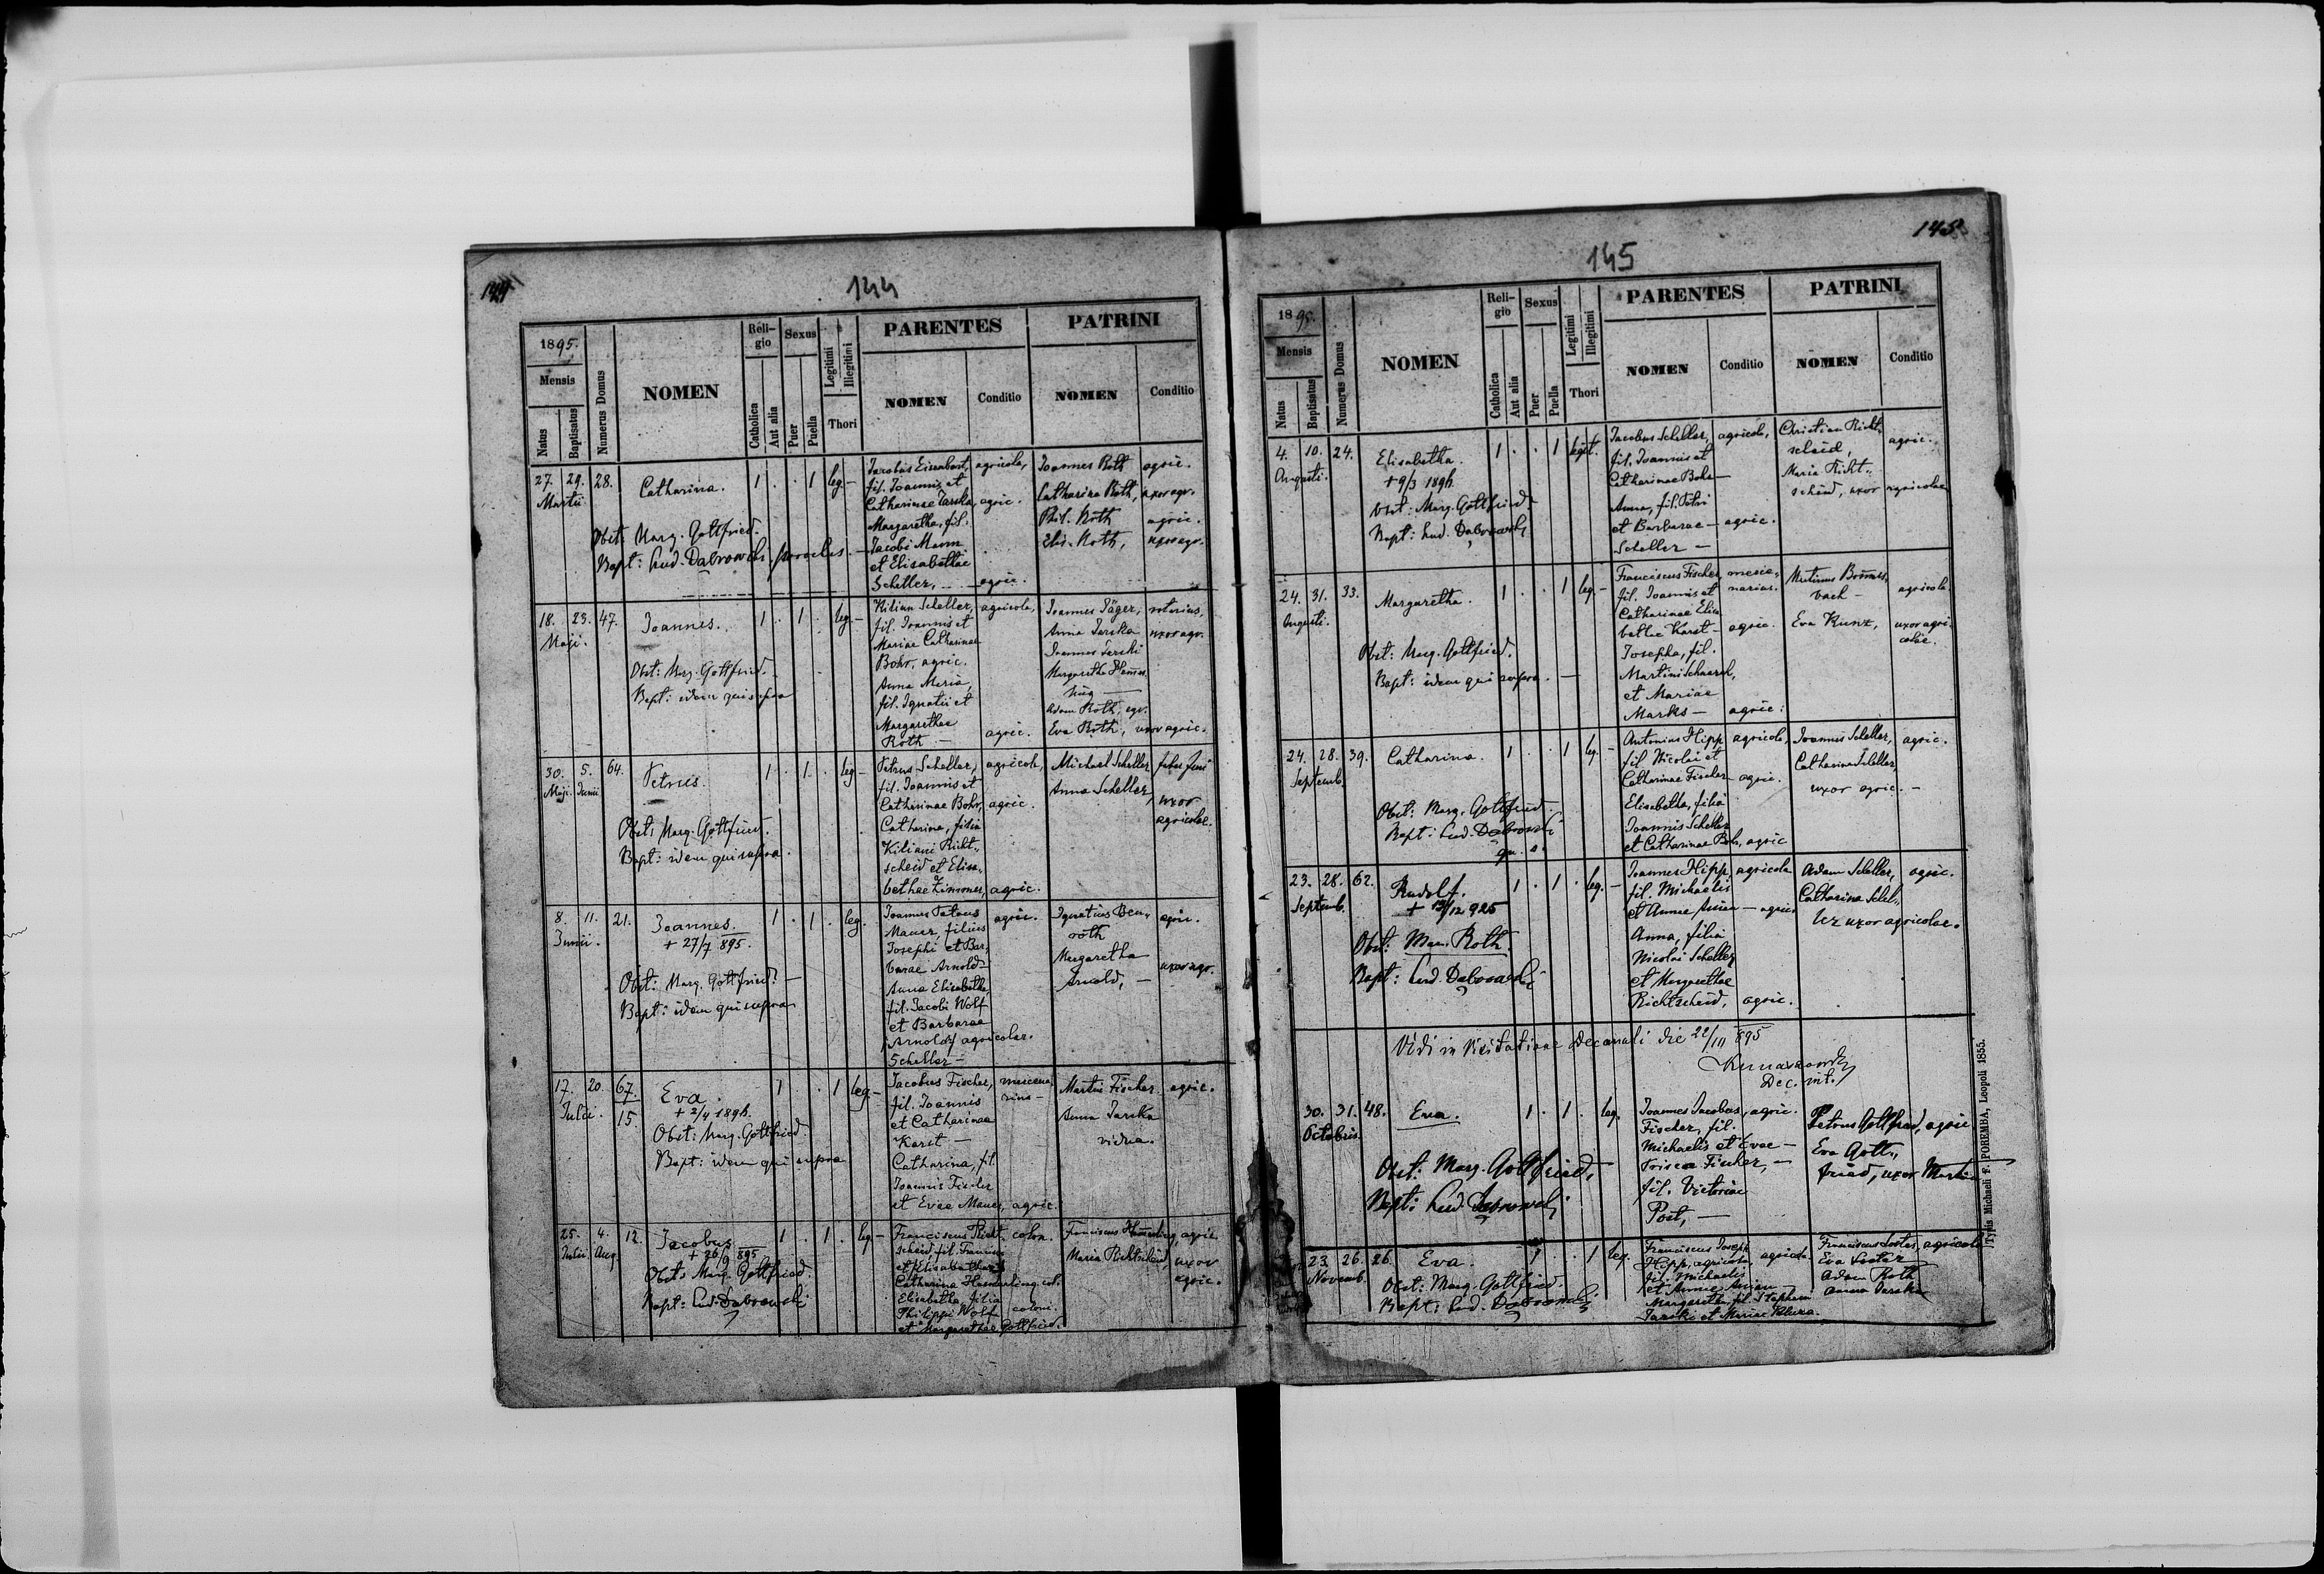 144
1895.
Mensis
Natus
Baptisatus
Numerus Domus
NOMEN
Reli-
gio
Catholica
Aut alia
Sexus
Puer
Puella
Legitimi
Illegitimi
Thori
PARENTES
NOMEN
Conditio
PATRINI
NOMEN
Conditio
27. 29. 28.
Martii
Catharina.
1 . . 1 leg.-
Obst: Marg. Gottfried.
Bapt: Lud. Dabrowski parochus. -
agricola,
fil. Joannis et
Catharinae Jarska, agric.
Margaretha, fil.
Jacobi Mann
et Elisabethae
Scheller, - agric.
Joannes Roth agric.
Catharina Roth, uxor agr.
Phil. Roth agric.
Elis. Roth, uxor agr.
18. 23. 47.
Maji.
Joannes.
1 . 1 . leg.-
Obst: Marg. Gottfried.
Bapt: idem qui supra
Kilian Scheller, agricola,
fil. Joannis et
Mariae Catharinae
Bohr, agric.
Anna Maria,
fil. Ignatii et
Margarethae
Roth - agric.
Joannes Jäger,
Anna Jarska uxor agr.
Joannes Jarski
Margaretha
Adam Roth, agr.
Eva Roth, uxor agric.
30. 5. 64.
Maji. Junii
Petrus.
1 . 1 . leg-
Obst: Marg. Gottfried.
Bapt: idem qui supra.
Petrus Scheller, agricola,
fil. Joannis et
Catharinae Bohr, agric.
Catharina, filia
Kiliani Richt-
scheid et Elisa-
bethae Zimmer, agric.
Michael Scheller,
Anna Scheller, uxor
agricolae.
8. 11. 21.
Junii.
Joannes.
+ 27/7 895.
1 . 1 . leg.
Obst: Marg. Gottfried. -
Bapt: idem qui supra
Joannes Petrus agric.
Mauer, filius
Josephi et Bar-
barae Arnold-
Anna Elisabetha,
fil. Jacobi Wolf
et Barbarae
agricolae.
Scheller-
Ignatius Ben-
roth agric.
Margaretha
Arnold, - uxor agr.
17. 20. 67.
Julii. 15
Eva.
+ 2/4 1896.
1 . . 1 leg-
Obst: Marg. Gottfried.
Bapt: idem qui supra
Jacobus Fischer, mercena-
fil. Joannis rius-
et Catharinae
Karst -
Catharina, fil.
Joannis Fischer
et Evae Mauer, agric.
Martin Fischer, agric.
Anna Jarska
vidua.
25. 4. 12.
Julii. Aug.
Jacobus
+ 26/9 895
1 . 1 . leg-
Obst: Marg. Gottfried.
Bapt: Lud. Dabrowski
Franciscus Richt- colon.
scheid, fil. Francisci
et Elisabethae
Catharina Hamerling, col.
Elisabetha, filia
Philippi Wolf coloni.
et Margarethae Gottfried.
Franciscus agric.
Maria Richtscheid, uxor
agric.
145
145
1895.
Mensis
Natus
Baptisatus
Numerus Domus
NOMEN
Reli-
gio
Catholica
Aut alia
Sexus
Puer
Puella
Legitimi
Illegitimi
Thori
PARENTES
NOMEN
Conditio
PATRINI
NOMEN
Conditio
4. 10. 24.
Augusti.
Elisabetha.
+ 9/3 1896.
1 . . 1 legit.
Obst: Marg. Gottfried.
Bapt: Lud. Dabrowski
Jacobus Scheller, agricola,
fil. Joannis et
Catharinae Bohr-
Anna, fil. Petri
et Barbarae - agric.
Scheller -
Christian Richt-
scheid, agric.
Maria Richt-
scheid, uxor agricolae
24. 31. 33.
Augusti.
Margaretha.
1 . . 1 leg-
Obst: Marg. Gottfried.
Bapt: idem qui supra. -
Franciscus Fischer, merce-
fil. Joannis et narius.
Catharinae Elisa-
bethae Karst - agric.
Josepha, fil.
Martini
et Mariae
Marks - agric.
bach - agricola
Eva Kunz, uxor agri-
colae.
24. 28. 39.
Septemb.
Catharina.
1 . . 1 leg. -
Obst: Marg. Gottfried.
Bapt: Lud. Dabrowski
qu. s.
Antonius Hipp, agricola,
fil. Nicolai et
Catharinae Fischer - agric.
Elisabetha, filia
Joannis Scheller
et Catharinae Bohr, agric
Joannes Scheller, agric.
Catharina Scheller,
uxor agric. -
23. 28. 62.
Septemb.
Rudolf.
+ 13/12 925
1 . 1 . leg. -
Obst: Mar. Roth.
Bapt: Lud. Dabrowski
Joannes Hipp, agricola
fil. Michaelis
et Annae - agric.
Anna, filia
Nicolai Scheller
et Margarethae
Richtscheid, agric.
Adam Scheller, agric.
Catharina Schel-
ler uxor agricolae.
Vidi in Visitatione Decanali die 22/10 895
Dec. int.
30. 31. 48.
Octobris.
Eva.
1 . 1 . leg.
Obst: Marg. Gottfried,
Bapt: Lud. Dabrowski
Joannes Jacobus, agric.
Fischer, fil.
Michaelis et Evae -
Fischer, -
fil. Victoriae
Post, -
Petrus Gottfried, agric
Eva Gott-
fried, uxor
23. 26. 26.
Novemb.
Eva.
1 . . 1 leg.
Obst: Marg. Gottfried.
Bapt: Lud. Dabrowski
Franciscus Joseph
Hipp, agricola agricola.
fil. Michaelis
et Annae
Margaretha, fil. Stephani
Jarski et Mariae
agricola
Adam Roth
Anna Jarska
Typis Michaeli F. POREMBA, Leopoli 1855.